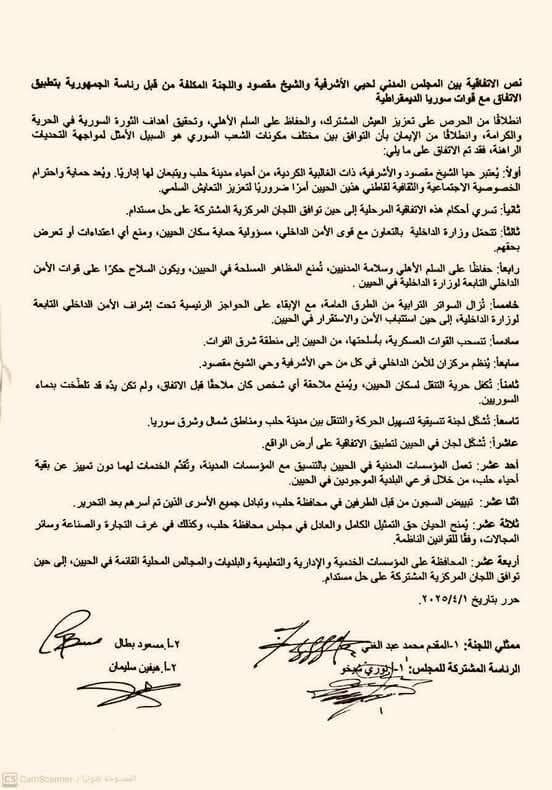 نص الاتفاقية بين المجلس المدني لحيي الأشرفية والشيخ مقصود واللجنة المكلفة من قبل رئاسة الجمهورية بتطبيق
الاتفاق مع قوات سوريا الديمقراطية
انطلاقًا من الحرص على تعزيز العيش المشترك، والحفاظ على السلم الأهلي، وتحقيق أهداف الثورة السورية في الحرية
والكرامة، وانطلاقًا من الإيمان بأن التوافق بين مختلف مكونات الشعب السوري هو السبيل الأمثل لمواجهة التحديات
الراهنة، فقد تم الاتفاق على ما يلي:
أولاً: يُعتبر حيا الشيخ مقصود والأشرفية، ذات الغالبية الكردية، من أحياء مدينة حلب ويتبعان لها إداريًا. ويُعد حماية واحترام
الخصوصية الاجتماعية والثقافية لقاطني هذين الحيين أمرًا ضروريًا لتعزيز التعايش السلمي.
ثانياً: تسري أحكام هذه الاتفاقية المرحلية إلى حين توافق اللجان المركزية المشتركة على حل مستدام.
ثالثاً: تتحمل وزارة الداخلية بالتعاون مع قوى الأمن الداخلي، مسؤولية حماية سكان الحيين، ومنع أي اعتداءات أو تعرض
بحقهم.
رابعاً: حفاظًا على السلم الأهلي وسلامة المدنيين، تُمنع المظاهر المسلحة في الحيين، ويكون السلاح حكرًا على قوات الأمن
الداخلي التابعة لوزارة الداخلية في الحيين .
خامساً: تُزال السواتر الترابية من الطرق العامة، مع الإبقاء على الحواجز الرئيسية تحت إشراف الأمن الداخلي التابعة
لوزارة الداخلية، إلى حين استتباب الأمن والاستقرار في الحيين.
سادساً: تنسحب القوات العسكرية، بأسلحتها، من الحيين إلى منطقة شرق الفرات.
سابعاً: يُنظم مركزان للأمن الداخلي في كل من حي الأشرفية وحي الشيخ مقصود.
ثامناً: تُكفل حرية التنقل لسكان الحيين، ويُمنع ملاحقة أي شخص كان ملاحقًا قبل الاتفاق، ولم تكن يدُه قد تلطّخت بدماء
السوريين.
تاسعاً: تُشكّل لجنة تنسيقية لتسهيل الحركة والتنقل بين مدينة حلب ومناطق شمال وشرق سوريا.
عاشراً: تُشكّل لجان في الحيين لتطبيق الاتفاقية على أرض الواقع.
أحد عشر: تعمل المؤسسات المدنية في الحيين بالتنسيق مع المؤسسات المدينة، وتُقدّم الخدمات لهما دون تمييز عن بقية
أحياء حلب، من خلال فرعي البلدية الموجودين في الحيين.
اثنا عشر: تبييض السجون من قبل الطرفين في محافظة حلب، وتبادل جميع الأسرى الذين تم أسرهم بعد التحرير.
ثلاثة عشر: يُمنح الحيان حق التمثيل الكامل والعادل في مجلس محافظة حلب، وكذلك في غرف التجارة والصناعة وسائر
المجالات، وفقًا للقوانين الناظمة.
أربعة عشر: المحافظة على المؤسسات الخدمية والإدارية والتعليمية والبلديات والمجالس المحلية القائمة في الحيين، إلى حين
توافق اللجان المركزية المشتركة على حل مستدام.
حرر بتاريخ ٢٠٢٥/٤/١.
ممثلي اللجنة: ١-المقدم محمد عبد الغني ٢-أ.مسعود بطال
الرئاسة المشتركة للمجلس: ١-أ.نوري شيخو ٢-أ.هيفين سليمان
١
CS CamScanner الممسوحة ضوئيا بـ